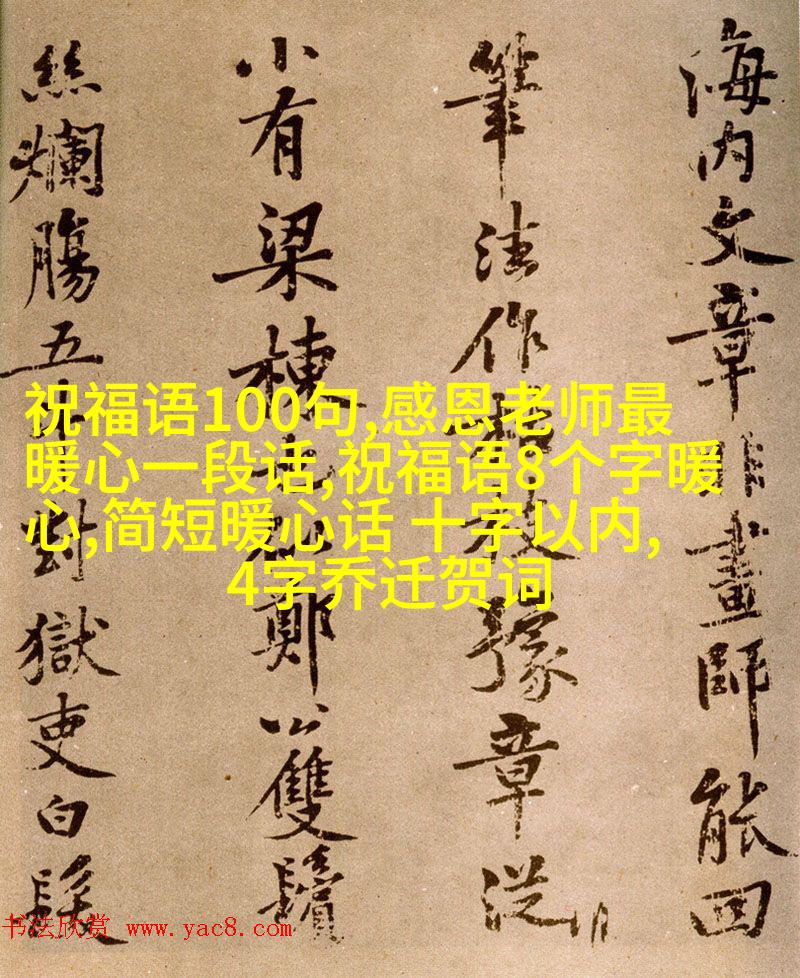 海内文章非畫師能回
筆法作枯枝豫章從
小有梁棟也似鄭公雙鬢
絲爛腸五斗對獄吏白髮
祝福语100句,感恩老师最
暖心一段话,祝福语8个字暖
心,简短暖心话 十字以内,
4字乔迁贺词
书法欣赏 www.yac8.com